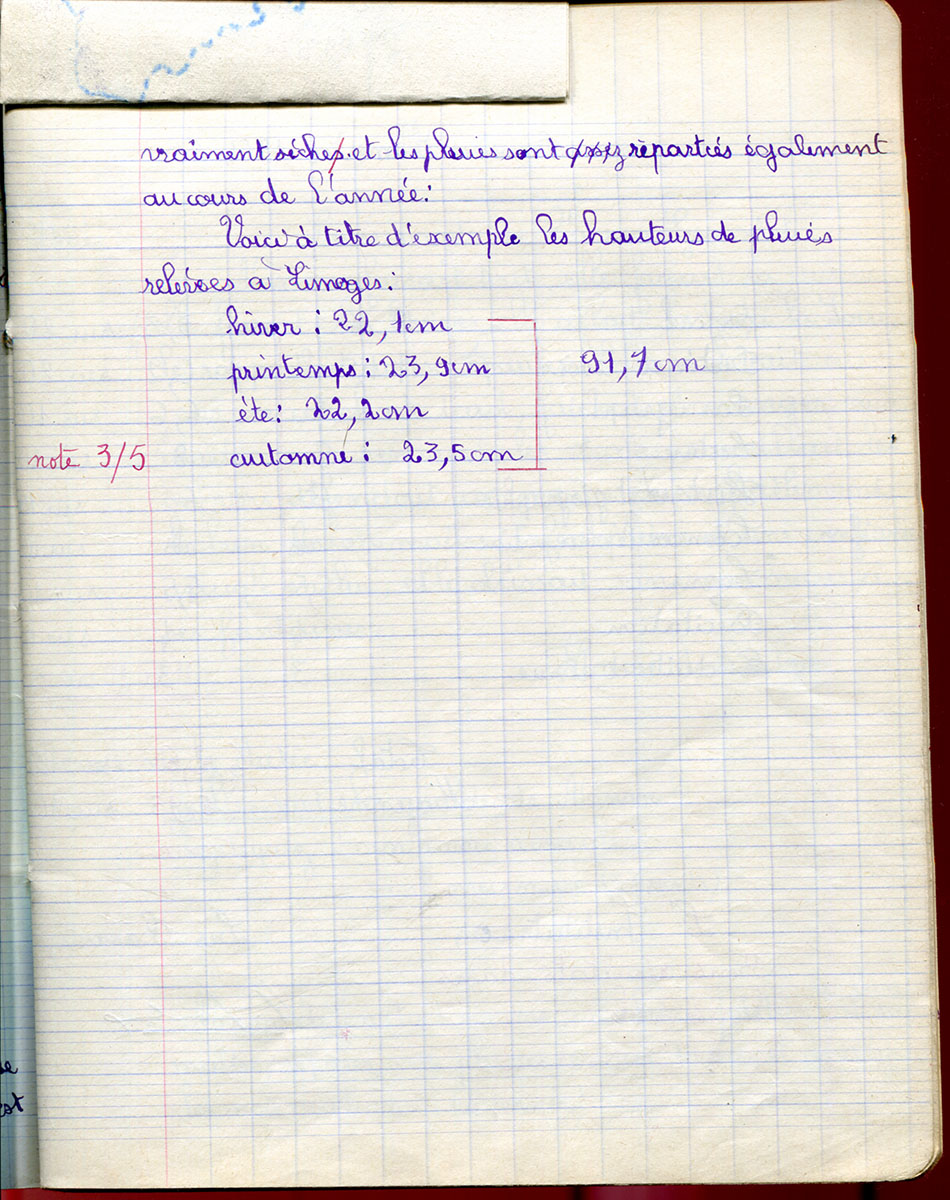 vraiment sèches. et les pluies sont assez réparties également
au cours de l'année:
Voici à titre d'exemple les hauteurs de pluies
relevées à Limoges:
hiver : 22,1cm
printemps : 23,9cm 91,7cm
éte: 22,2cm
note 3/5 automne : 23,5cm
se
est